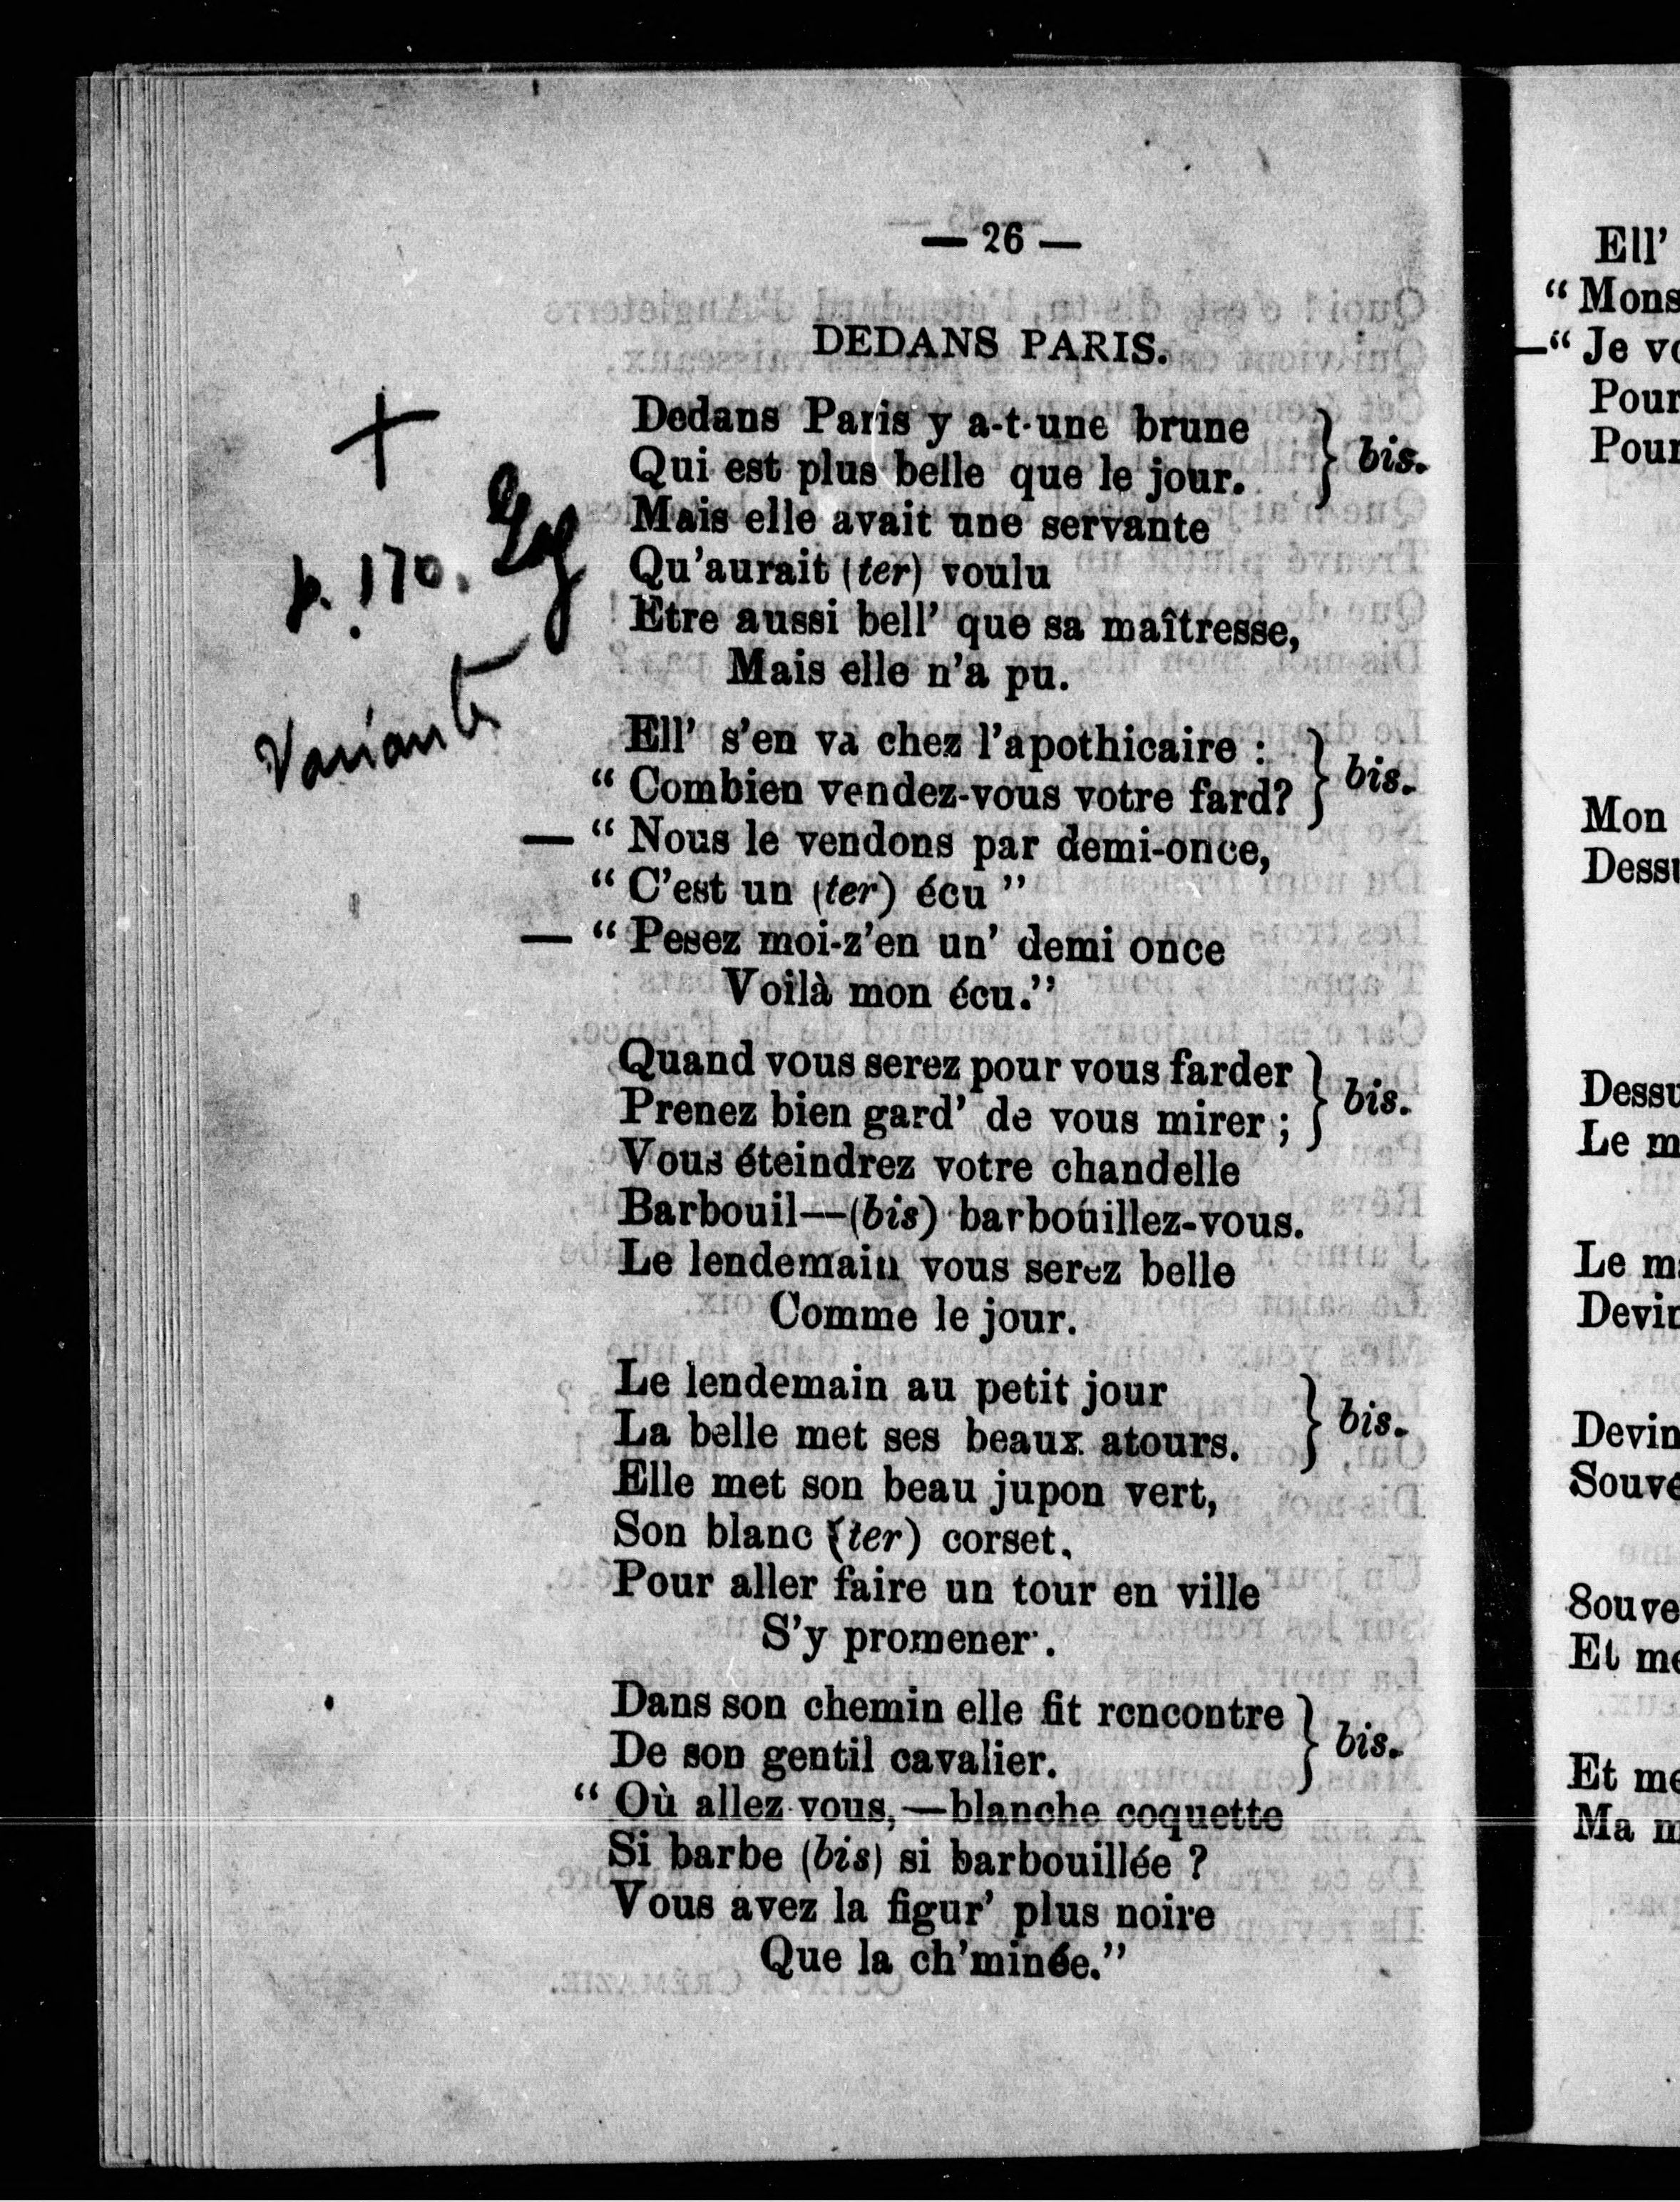 — 26 —
DEDANS PARIS.
Dedans Paris y a-t-une brune
Qui est plus belle que le jour. } bis.
Mais elle avait une servante
Qu'aurait (ter) voulu
Etre aussi bell' que sa maîtresse,
Mais elle n'a pu.
Ell' s'en va chez l'apothicaire :
“ Combien vendez-vous votre fard? } bis.
— “ Nous le vendons par demi-once,
“ C'est un (ter) écu ”
— “ Pesez moi-z'en un' demi once
Voilà mon écu.”
Quand vous serez pour vous farder
Prenez bien gard' de vous mirer ; } bis.
Vous éteindrez votre chandelle
Barbouil—(bis) barbouillez-vous.
Le lendemain vous serez belle
Comme le jour.
Le lendemain au petit jour
La belle met ses beaux atours. } bis.
Elle met son beau jupon vert,
Son blanc (ter) corset,
Pour aller faire un tour en ville
S'y promener.
Dans son chemin elle fit rencontre
De son gentil cavalier. } bis.
“ Où allez-vous,—blanche coquette
Si barbe (bis) si barbouillée ?
Vous avez la figur' plus noire
Que la ch'minée.”
+
p. 170.
Variante
Ell'
“ Mons
—“ Je vo
Pour
Pour
Mon
Dessu
Dessu
Le m
Le ma
Devin
Devin
Souve
Souve
Et me
Et me
Ma m